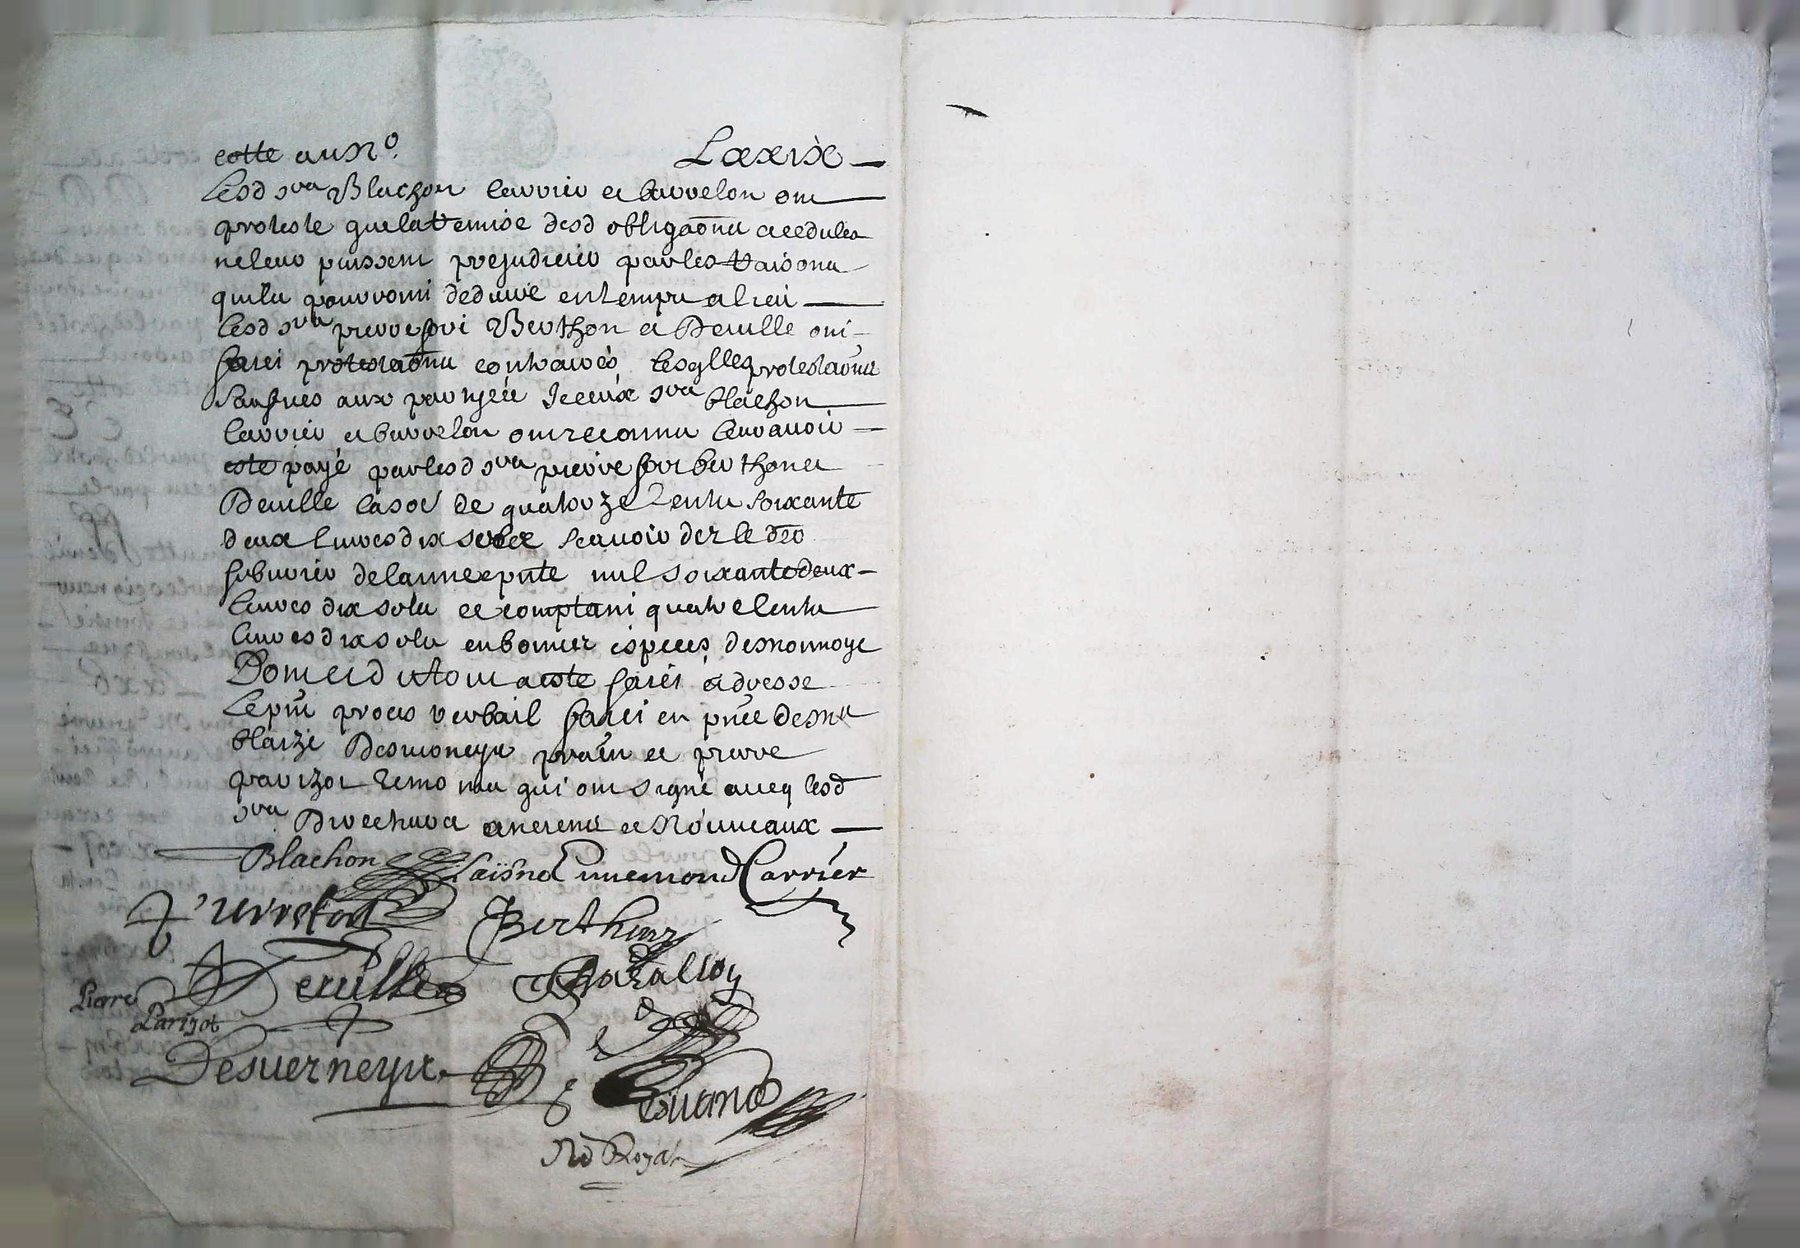 cotte au No. Lxxix
Lesd srs Blachon Carrier et burrelon ont
proteste que la remise desd obligaõns et cedules
ne leur puissent prejudicier par les raisons
quils pourront deduire en temps et lieu
Lesd srs pierrefort Berthon et Deville ont
faict protestaõns contraires Lesqlles protestaõns
Saufues aux partyes Iceux srs blachon
Carrier et burrelon ont reconnu leur auoir
este payé par lesd srs pierrefort berthon et
Deuille la soe de quatorze Cents soixante
deux liures dix solz scauoir dez le
feburier de lannee pnte mil soixante deux
liures dix sols et comptant quatre Cents
liures dix sols en bonnes especes de monnoye
Dont et du tout a este faict et dresse
Le pnt proces verbail faict en pnce de
blaize Desverneys et pierre
parizot temoins qui ont signé aueq lesd
srs Directeurs antiens et Nouueaux
Blachon Laisné Ennemond Carrier
Burrelon Berthon
Deuille
Pierre
Parizot
Desuerneys
Nre Royal